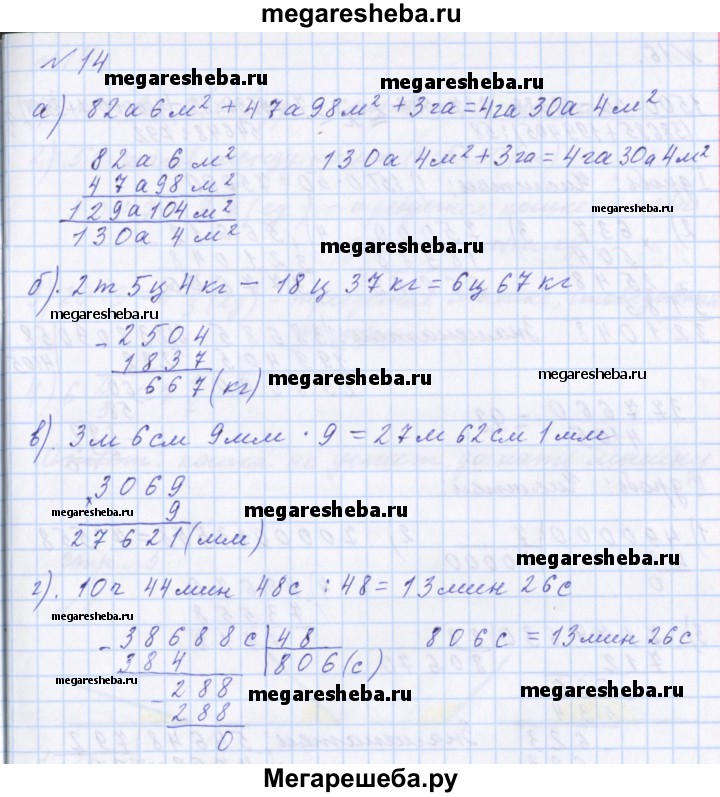 megaresheba.ru
№ 14
megaresheba.ru megaresheba.ru
а) 82а 6м² + 47а 98м² + 3га = 4га 30а 4м²
82а 6м² 130а 4м² + 3га = 4га 30а 4м²
47а 98м²
129а 104м² megaresheba.ru
130а 4м²
megaresheba.ru
б). 2т 5ц 4кг − 18ц 37кг = 6ц 67кг
megaresheba.ru
− 2504
1837
667 (кг) megaresheba.ru megaresheba.ru
в). 3м 6см 9мм · 9 = 27м 62см 1мм
× 3069
megaresheba.ru 9 megaresheba.ru
27621 (мм)
megaresheba.ru
г). 10ч 44мин 48с : 48 = 13мин 26с
megaresheba.ru
− 38688с 48 806с = 13мин 26с
384 806 (с)
megaresheba.ru − 288 megaresheba.ru megaresheba.ru
288
0
Мегарешеба.ру